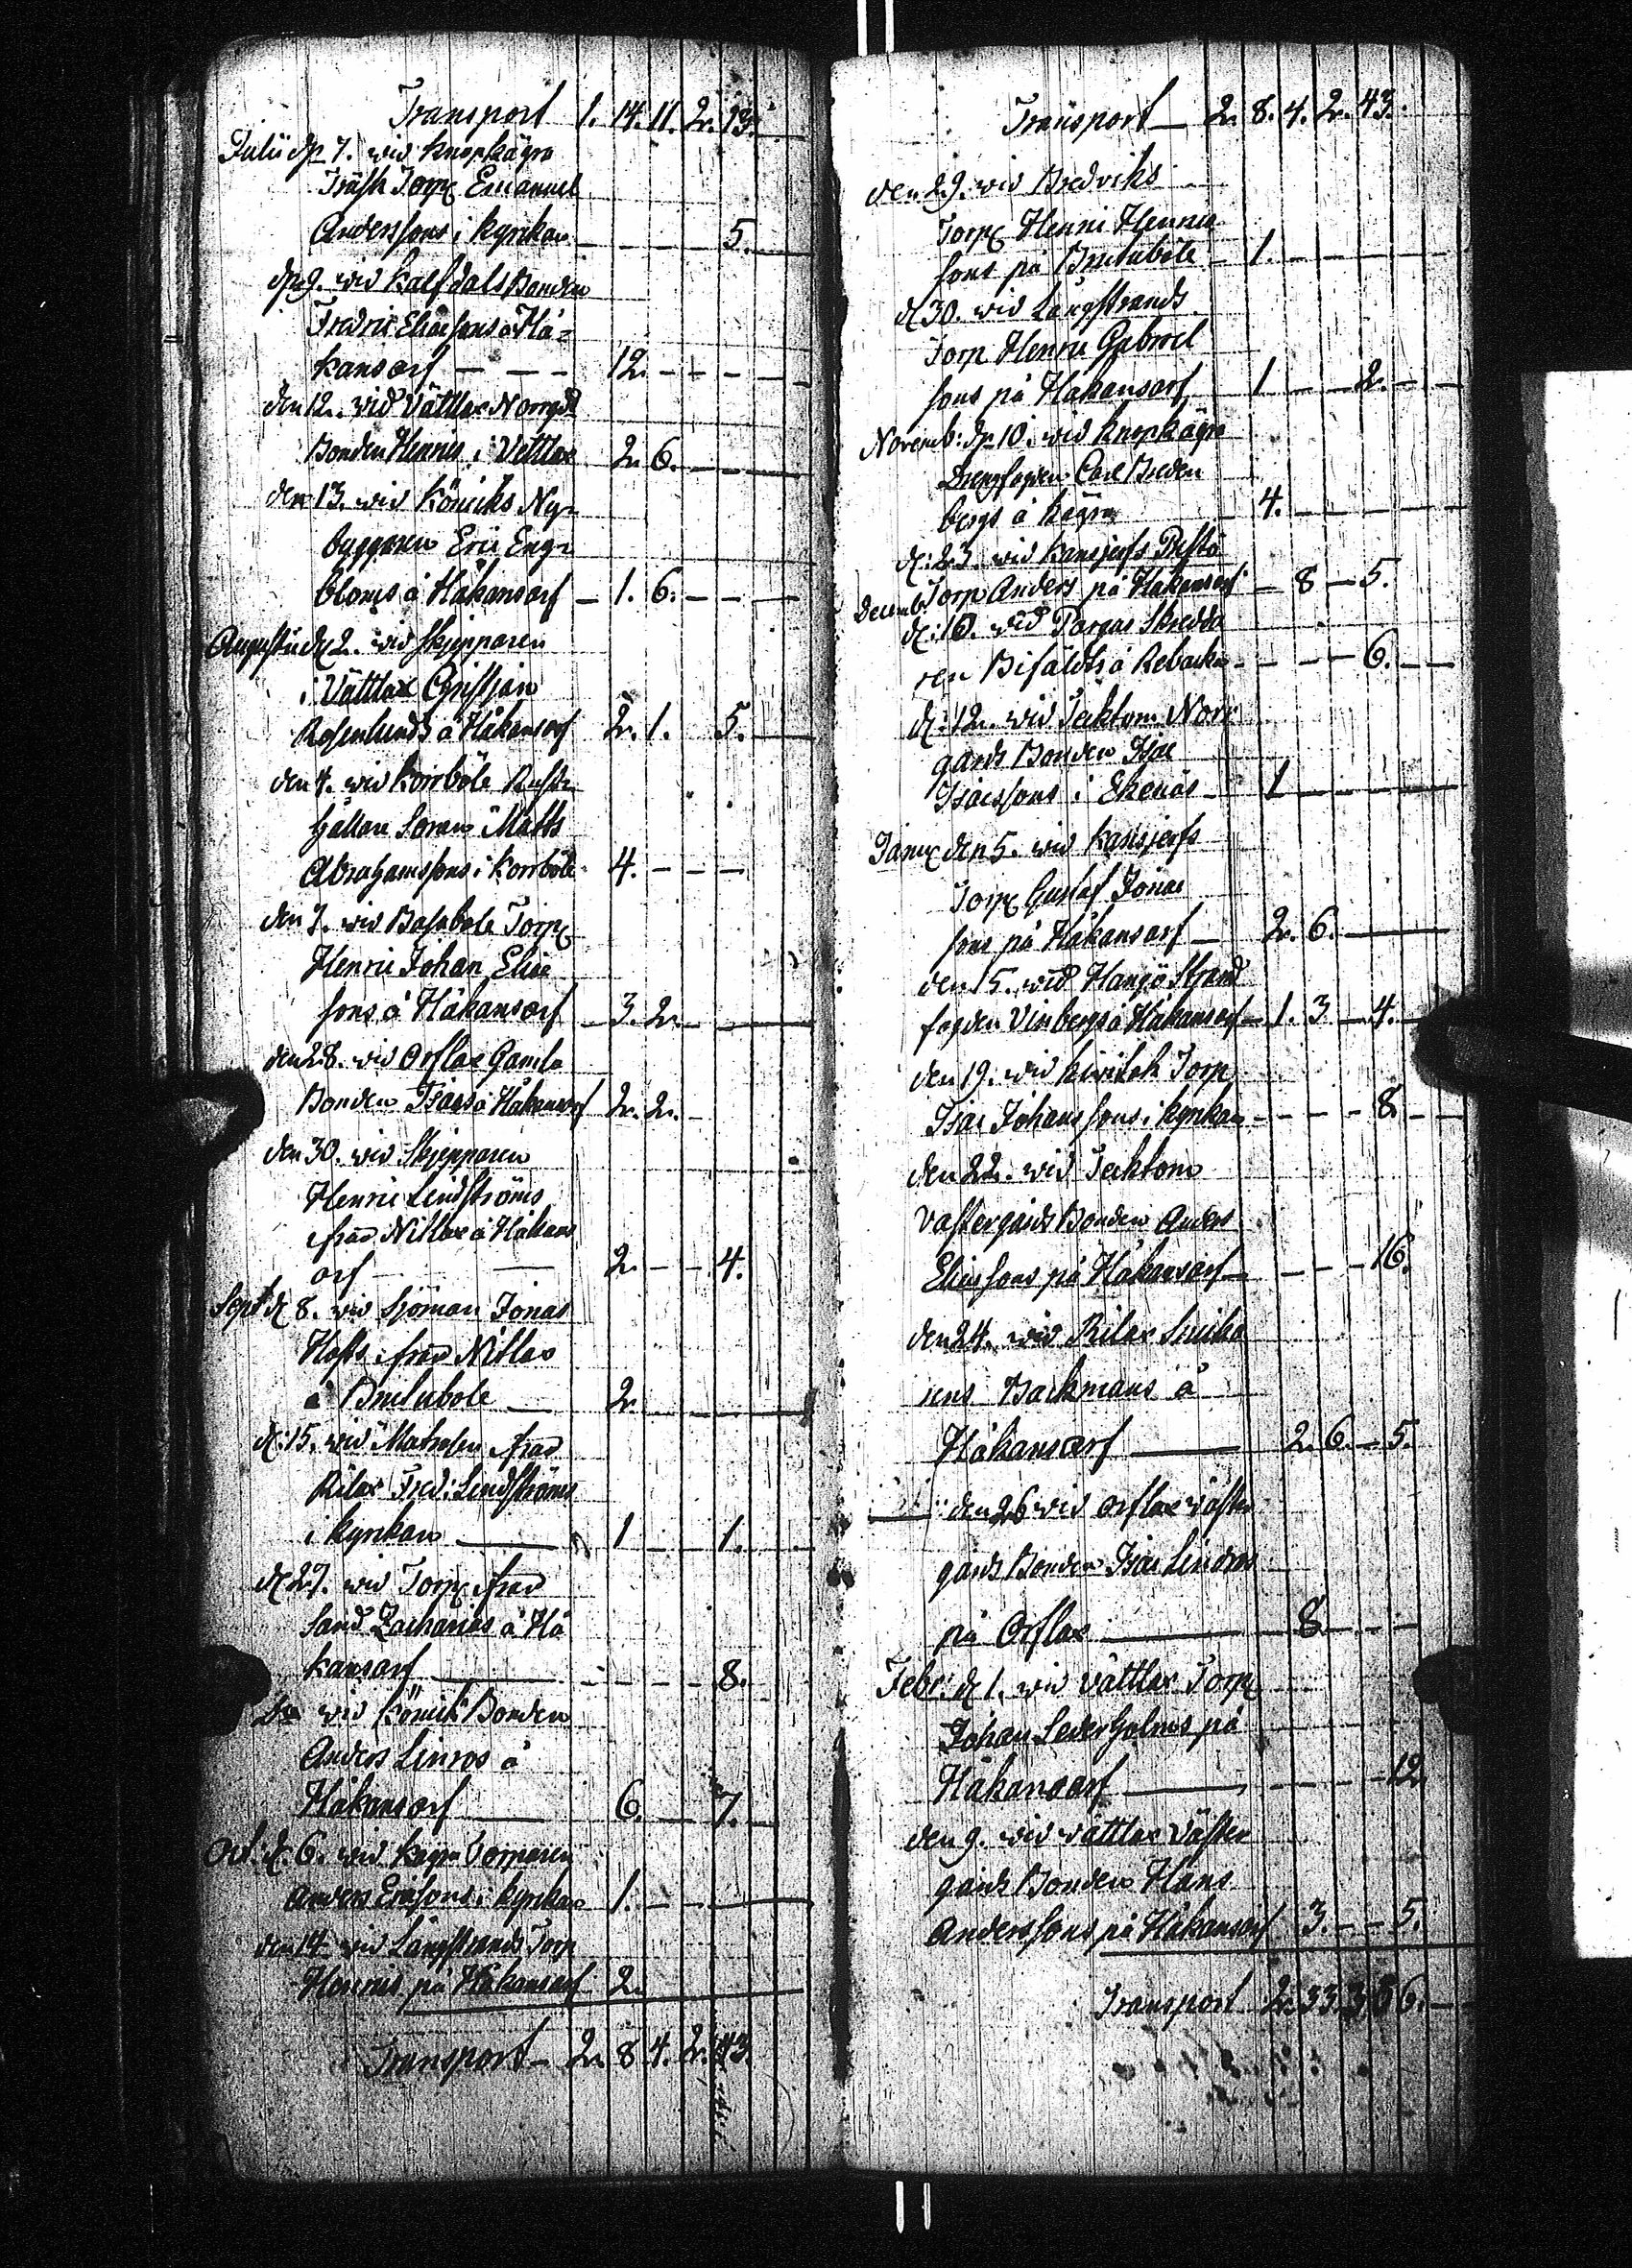 Transport 1. 14. 11. 2. 13.
Julii dn 7. wid Knopkägra
Träsk Torp Emanuel
Anderssons i Kyrkan - - - - 5.
dn 9. wid Kalfdals Bonden
Fredric Eliaesons å Hå-
kansarf - - - 12. - - - -
den 12. wid Vättlax Norrgds
Bonden Henrics i Vettlax 2. 6. - - -
den 13. wid Köniks Ny-
byggaren Eric Eng-
bloms å Håkansarf - 1. 6. - - -
Augusti d. 2. wid Skjepparen
i Vättlax Cristjan
Rosenlunds å Håkansarf 2. 1. 5. -
den 4. wid Korsböle Rust-
hållare Soran Matts
Abrahamssons i Korsböle 4. - - -
den 7. wid Basabole Torp
Henric Johan Elia
sons å Håkansarf - 3. 2. - - -
den 28. wid Orslax Gamla
Bonden Isaks å Håkansarf 2. 2. -
den 30. wid Skjepparen
Henric Lindströms
ifrån Nitlax å Håkans
arf - - 2. - - 4.
Sept d. 8. wid Sjöman Jonas
Hofts ifrån Nitlax
å Brulubole - 2. - - -
d: 15. wid Matrosen ifrån
Rilax Fred: Lindströms
i Kyrkan - 1 - - 1. -
d. 27. wid Torp ifrån
Sand Zacharias å Hå
kansarf - - - - - 8.
wid Könik Bonden
Anders Linros å
Håkansarf - 6. - 7. -
Oct. d. 6. wid Kägra Torparen
Anders Ericsons i Kyrkan 1. - - -
den 14. wid Långstrands Torp
Henrics på Håkansarf 2.
Transport - 2. 8 4. 2. 43.
Transport - 2. 8. 4. 2. 43.
den 29. wid Bredviks
Torp Henric Henric
sons på Brulubôle - 1. - - - -
d 30. wid Långstrands
Torp Henric Gabriel
sons på Håkansarf 1 - - 2. - -
Novemb: dn 10. wid Knopkägra
Carl Beden
bergs å Kägra - 4. - - - -
d: 23. wid Kansjerfs
Torp Anders på Håkansarf - 8 - 5.
Decemb. d: 10. wid Pargas Skredda
ren å Rebacka - - - - 6. - -
d: 12. wid Tecktom Norr
gards Bonden Isac
Isacssons i Ekenäs - 1 - - - -
Janu den 5. wid Kansjerfs
Torp Gustaf Jonae
sons på Håkansarf - 2. 6. -
den 15. wid Hangö Strand
fogden Vinbergs å Håkansarf - 1. 3. - 4. -
den 19. wid Torp
Isac Johanssons i Kyrkan - - - - 8. - -
den 22. wid Tecktom
Vastergards Bonden Anders
Eliassons på Håkansarf - - - - 16.
den 24. wid Rilax
Backmans å
Håkansarf - 2. 6. - 5.
den 26 wid Orslax väster
gards Bonden Isac Lindros
på Orslax - - 8 - - -
Febr: d. 1. wid Vättlax Torp
Johan Sederholms på
Håkansarf - - - - 12
den 9. wid wättlax Väster
gards Bonden Hans
Anderssons på Håkansarf 3. - - 5.
Transport 2. 33. 3